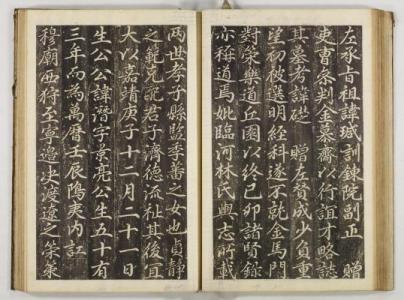 左承旨祖諱珹訓鍊院副正 贈
吏曹參判金慕齋以行誼才略誌
其墓考諱 贈左贊成少負重
望初被選明經科遂不就金馬門
對策樂道丘園以終己卯諸賢錄
亦稱道焉妣臨河林氏輿志所載
兩世孝子縣監季善之女也貞靜
之範允配君子濟德流祉其後宜
大以嘉靖庚子十二月二十一日
生公公諱濳字景亮公生五十有
三年而爲萬曆壬辰隝夷內訌
穆廟西狩至寧邊決渡遼之策策